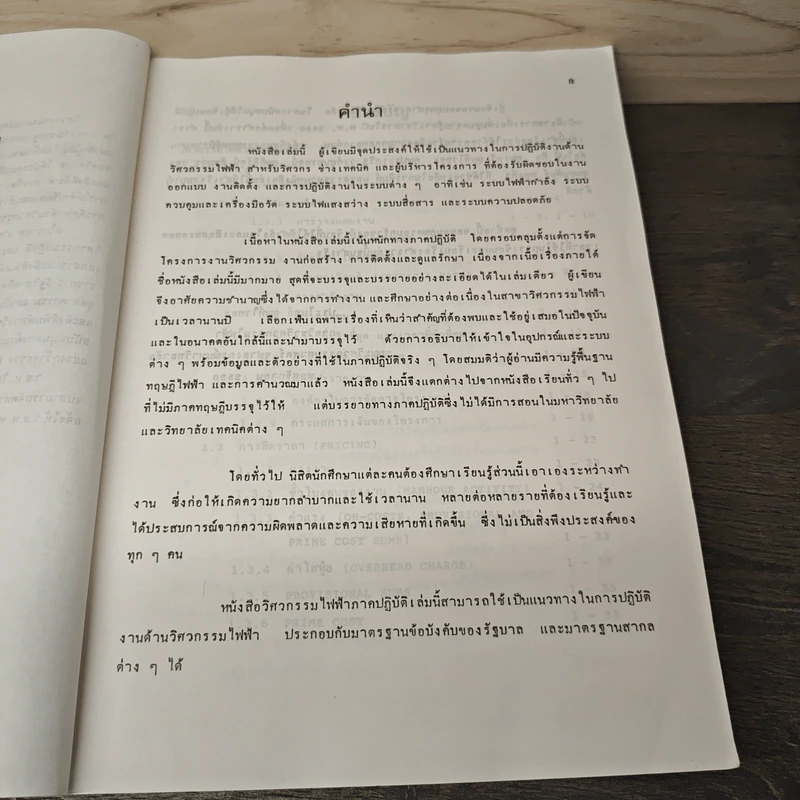 ก
คำนำ
หนังสือเล่มนี้ ผู้เขียนมีจุดประสงค์ให้ใช้เป็นแนวทางในการปฏิบัติงานด้าน
วิศวกรรมไฟฟ้า สำหรับวิศวกร ช่างเทคนิค และผู้บริหารโครงการ ที่ต้องรับผิดชอบในงาน
ออกแบบ งานติดตั้ง และการปฏิบัติงานในระบบต่าง ๆ อาทิเช่น ระบบไฟฟ้ากำลัง ระบบ
ควบคุมและเครื่องมือวัด ระบบไฟแสงสว่าง ระบบสื่อสาร และระบบความปลอดภัย
เนื้อหาในหนังสือเล่มนี้เน้นหนักทางภาคปฏิบัติ โดยครอบคลุมตั้งแต่การจัด
โครงการงานวิศวกรรม งานก่อสร้าง การติดตั้งและดูแลรักษา เนื่องจากเนื้อเรื่องภายใต้
ชื่อหนังสือเล่มนี้มีมากมาย สุดที่จะบรรจุและบรรยายอย่างละเอียดได้ในเล่มเดียว ผู้เขียน
จึงอาศัยความชำนาญซึ่งได้จากการทำงาน และศึกษาอย่างต่อเนื่องในสาขาวิศวกรรมไฟฟ้า
เป็นเวลานานปี เลือกเฟ้นเฉพาะเรื่องที่เห็นว่าสำคัญที่ต้องพบและใช้อยู่เสมอในปัจจุบัน
และในอนาคตอันใกล้นี้และนำมาบรรจุไว้ ด้วยการอธิบายให้เข้าใจในอุปกรณ์และระบบ
ต่าง ๆ พร้อมข้อมูลและตัวอย่างที่ใช้ในภาคปฏิบัติจริง ๆ โดยสมมติว่าผู้อ่านมีความรู้พื้นฐาน
ทฤษฎีไฟฟ้า และการคำนวณมาแล้ว หนังสือเล่มนี้จึงแตกต่างไปจากหนังสือเรียนทั่ว ๆ ไป
ที่ไม่มีภาคทฤษฎีบรรจุไว้ให้ แต่บรรยายทางภาคปฏิบัติซึ่งไม่ได้มีการสอนในมหาวิทยาลัย
และวิทยาลัยเทคนิคต่าง ๆ
โดยทั่วไป นิสิตนักศึกษาแต่ละคนต้องศึกษาเรียนรู้ส่วนนี้เอาเองระหว่างทำ
งาน ซึ่งก่อให้เกิดความยากลำบากและใช้เวลานาน หลายต่อหลายรายที่ต้องเรียนรู้และ
ได้ประสบการณ์จากความผิดพลาดและความเสียหายที่เกิดขึ้น ซึ่งไม่เป็นสิ่งพึงประสงค์ของ
ทุก ๆ คน
หนังสือวิศวกรรมไฟฟ้าภาคปฏิบัติเล่มนี้สามารถใช้เป็นแนวทางในการปฏิบัติ
งานด้านวิศวกรรมไฟฟ้า ประกอบกับมาตรฐานข้อบังคับของรัฐบาล และมาตรฐานสากล
ต่าง ๆ ได้